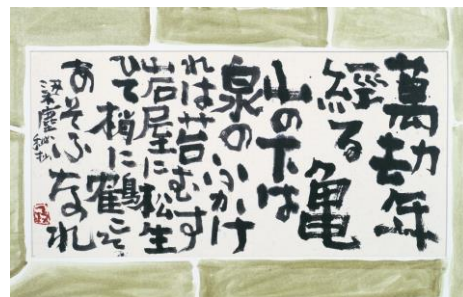 萬劫年
經る亀
山の下は
泉のふかけ
れは苔むす
岩屋に松生
ひて梢に鶴こそ
あそふなれ
梁塵秘抄